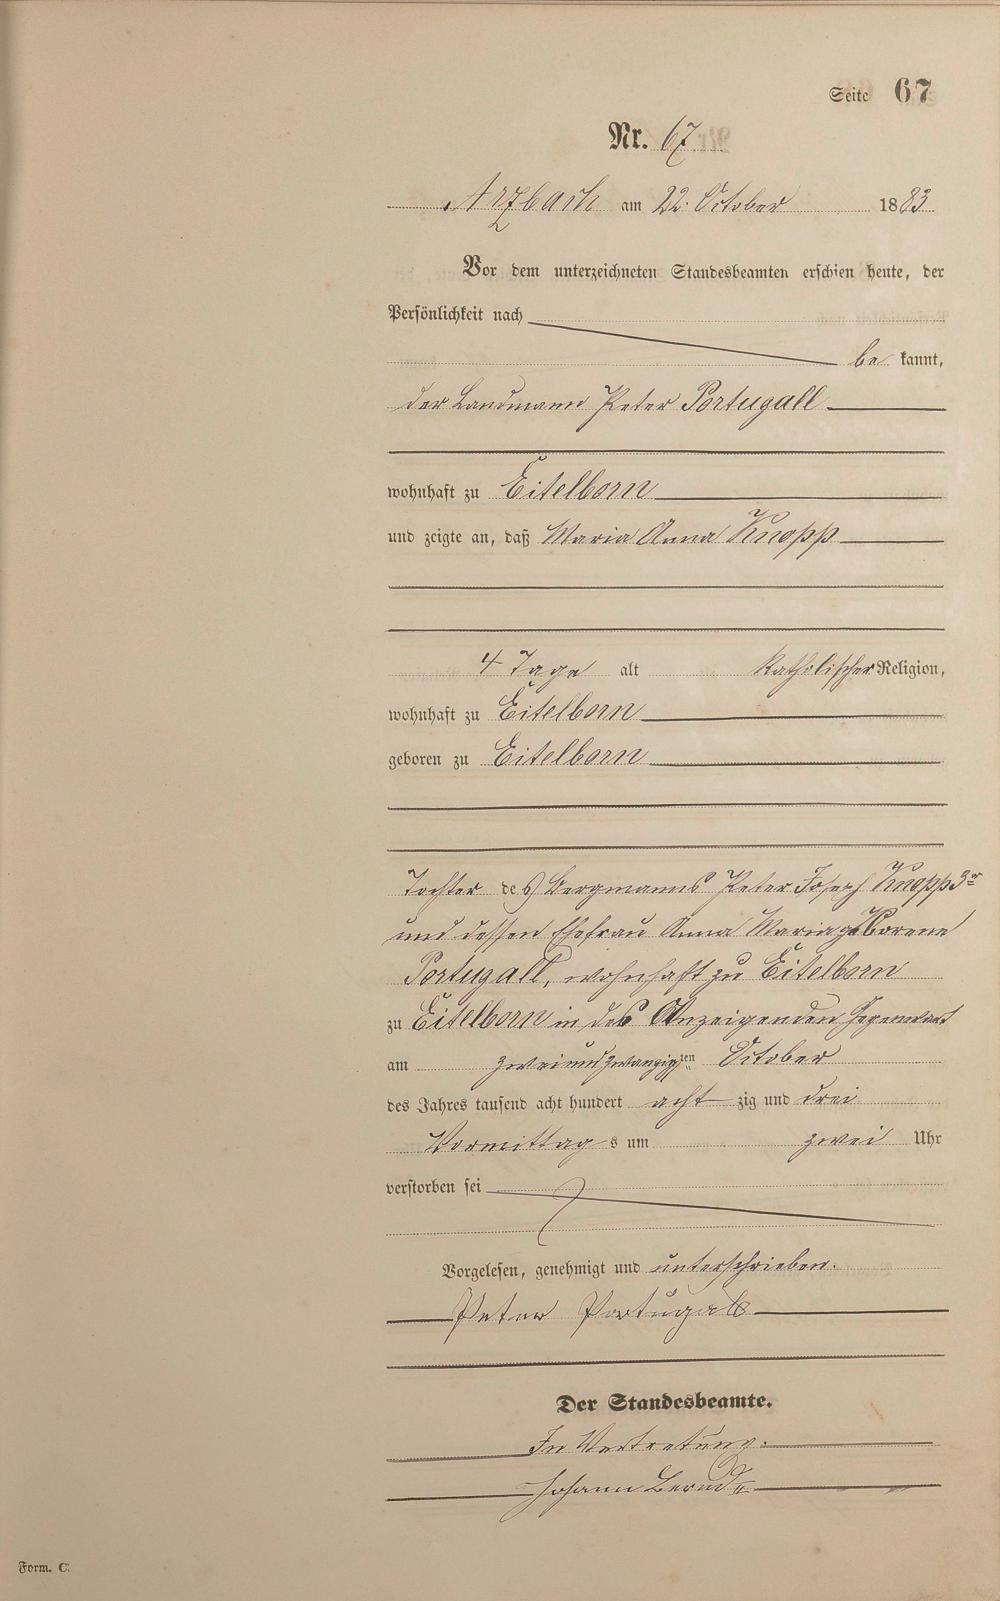 Seite 67
Nr. 67
Arzbach am 22. October 1883
Vor dem unterzeichneten Standesbeamten erschien heute, der
Persönlichkeit nach
be kannt,
der Landmann Peter Portugall
wohnhaft zu Eitelborn
und zeigte an, daß Maria Anna Knopp
4 Tage alt katholischer Religion,
wohnhaft zu Eitelborn
geboren zu Eitelborn
Tochter des Bergmanns Peter Joseph Knopp 3r
und dessen Ehefrau Anna Maria geborene
Portugall, wohnhaft zu Eitelborn
zu Eitelborn in des Anzeigenden Gegenwart
am zweiundzwanzigsten October
des Jahres tausend acht hundert acht zig und drei
Vormittag s um zwei Uhr
verstorben sei
Vorgelesen, genehmigt und unterschrieben.
Peter Portugall
Der Standesbeamte.
In Vertretung.
Johann Bernd
Form. C.